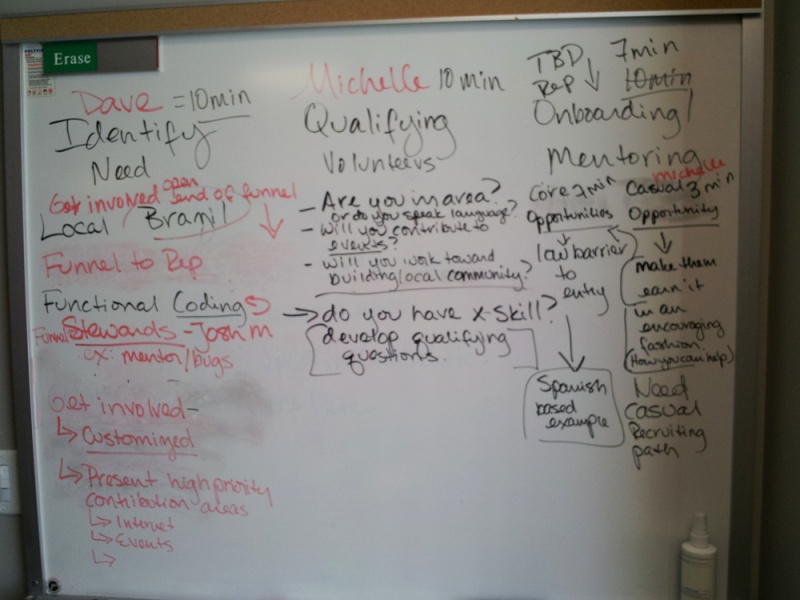 Erase
Dave = 10min
Identify
Need
Get involved open end of funnel
Local Brazil
Funnel to Rep
Functional Coding
Funnel Stewards - Josh m
ex: mentor/bugs
Get involved-
Customized
Present high priority
contribution areas
Internet
Events
Michelle 10 min
Qualifying
Volunteers
- Are you in area?
or do you speak language?
- will you contribute to
events?
- will you work toward
building local community?
do you have x-skill?
develop qualifying
questions.
TBD 7min
Rep 10min
Onboarding/
Mentoring
michelle
Core 7min
Opportunities
low barrier
to
entry
Spanish
based
example
Casual 3 min
Opportunity
make them
earn it
in an
encouraging
fashion.
(How you can help)
Need
Casual
Recruiting
path